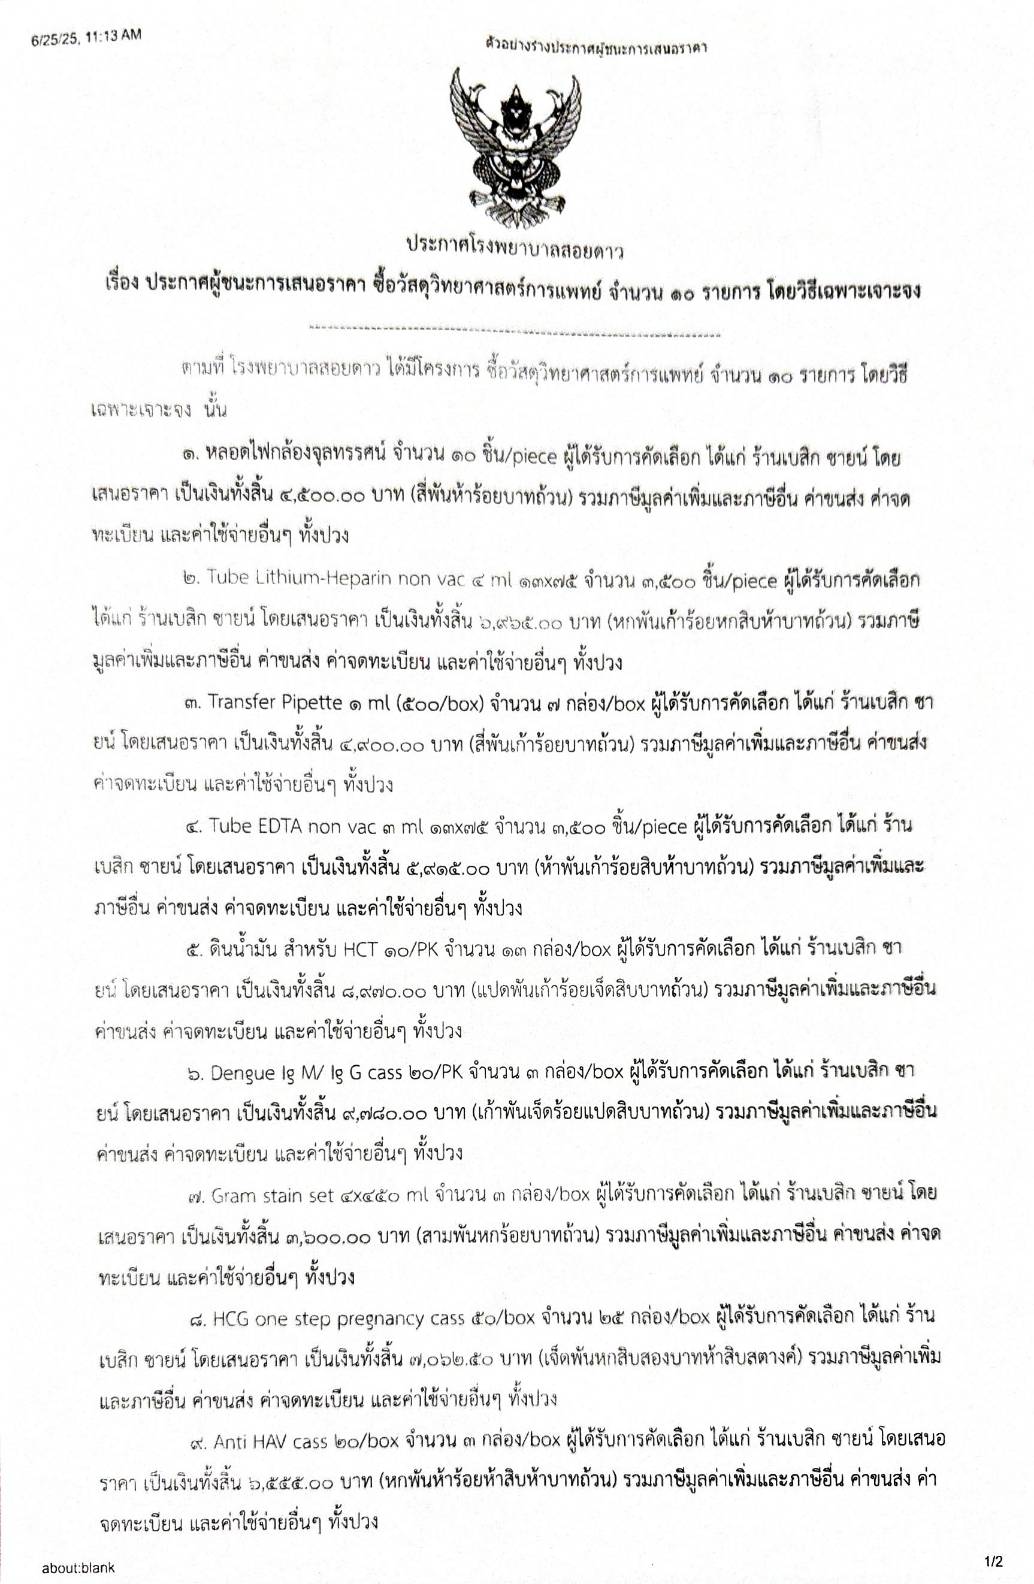 6/25/25, 11:13 AM
ตัวอย่างร่างประกาศผู้ชนะการเสนอราคา
ประกาศโรงพยาบาลสอยดาว
เรื่อง ประกาศผู้ชนะการเสนอราคา ซื้อวัสดุวิทยาศาสตร์การแพทย์ จำนวน ๑๐ รายการ โดยวิธีเฉพาะเจาะจง
ตามที่ โรงพยาบาลสอยดาว ได้มีโครงการ ซื้อวัสดุวิทยาศาสตร์การแพทย์ จำนวน ๑๐ รายการ โดยวิธี
เฉพาะเจาะจง นั้น
๑. หลอดไฟกล้องจุลทรรศน์ จำนวน ๑๐ ชิ้น/piece ผู้ได้รับการคัดเลือก ได้แก่ ร้านเบสิก ซายน์ โดย
เสนอราคา เป็นเงินทั้งสิ้น ๔,๕๐๐.๐๐ บาท (สี่พันห้าร้อยบาทถ้วน) รวมภาษีมูลค่าเพิ่มและภาษีอื่น ค่าขนส่ง ค่าจด
ทะเบียน และค่าใช้จ่ายอื่นๆ ทั้งปวง
๒. Tube Lithium-Heparin non vac ๔ ml ๑๓x๗๕ จำนวน ๓,๕๐๐ ชิ้น/piece ผู้ได้รับการคัดเลือก
ได้แก่ ร้านเบสิก ซายน์ โดยเสนอราคา เป็นเงินทั้งสิ้น ๖,๙๖๕.๐๐ บาท (หกพันเก้าร้อยหกสิบห้าบาทถ้วน) รวมภาษี
มูลค่าเพิ่มและภาษีอื่น ค่าขนส่ง ค่าจดทะเบียน และค่าใช้จ่ายอื่นๆ ทั้งปวง
๓. Transfer Pipette ๑ ml (๕๐๐/box) จำนวน ๗ กล่อง/box ผู้ได้รับการคัดเลือก ได้แก่ ร้านเบสิก ซา
ยน์ โดยเสนอราคา เป็นเงินทั้งสิ้น ๔,๙๐๐.๐๐ บาท (สี่พันเก้าร้อยบาทถ้วน) รวมภาษีมูลค่าเพิ่มและภาษีอื่น ค่าขนส่ง
ค่าจดทะเบียน และค่าใช้จ่ายอื่นๆ ทั้งปวง
๔. Tube EDTA non vac ๓ ml ๑๓x๗๕ จำนวน ๓,๕๐๐ ชิ้น/piece ผู้ได้รับการคัดเลือก ได้แก่ ร้าน
เบสิก ซายน์ โดยเสนอราคา เป็นเงินทั้งสิ้น ๕,๙๑๕.๐๐ บาท (ห้าพันเก้าร้อยสิบห้าบาทถ้วน) รวมภาษีมูลค่าเพิ่มและ
ภาษีอื่น ค่าขนส่ง ค่าจดทะเบียน และค่าใช้จ่ายอื่นๆ ทั้งปวง
๕. ดินน้ำมัน สำหรับ HCT ๑๐/PK จำนวน ๑๓ กล่อง/box ผู้ได้รับการคัดเลือก ได้แก่ ร้านเบสิก ซา
ยน์ โดยเสนอราคา เป็นเงินทั้งสิ้น ๘,๙๗๐.๐๐ บาท (แปดพันเก้าร้อยเจ็ดสิบบาทถ้วน) รวมภาษีมูลค่าเพิ่มและภาษีอื่น
ค่าขนส่ง ค่าจดทะเบียน และค่าใช้จ่ายอื่นๆ ทั้งปวง
๖. Dengue Ig M/ Ig G cass ๒๐/PK จำนวน ๓ กล่อง/box ผู้ได้รับการคัดเลือก ได้แก่ ร้านเบสิก ซา
ยน์ โดยเสนอราคา เป็นเงินทั้งสิ้น ๙,๗๘๐.๐๐ บาท (เก้าพันเจ็ดร้อยแปดสิบบาทถ้วน) รวมภาษีมูลค่าเพิ่มและภาษีอื่น
ค่าขนส่ง ค่าจดทะเบียน และค่าใช้จ่ายอื่นๆ ทั้งปวง
๗. Gram stain set ๔x๔๕๐ ml จำนวน ๓ กล่อง/box ผู้ได้รับการคัดเลือก ได้แก่ ร้านเบสิก ซายน์ โดย
เสนอราคา เป็นเงินทั้งสิ้น ๓,๖๐๐.๐๐ บาท (สามพันหกร้อยบาทถ้วน) รวมภาษีมูลค่าเพิ่มและภาษีอื่น ค่าขนส่ง ค่าจด
ทะเบียน และค่าใช้จ่ายอื่นๆ ทั้งปวง
๘. HCG one step pregnancy cass ๕๐/box จำนวน ๒๕ กล่อง/box ผู้ได้รับการคัดเลือก ได้แก่ ร้าน
เบสิก ซายน์ โดยเสนอราคา เป็นเงินทั้งสิ้น ๗,๐๖๒.๕๐ บาท (เจ็ดพันหกสิบสองบาทห้าสิบสตางค์) รวมภาษีมูลค่าเพิ่ม
และภาษีอื่น ค่าขนส่ง ค่าจดทะเบียน และค่าใช้จ่ายอื่นๆ ทั้งปวง
๙. Anti HAV cass ๒๐/box จำนวน ๓ กล่อง/box ผู้ได้รับการคัดเลือก ได้แก่ ร้านเบสิก ซายน์ โดยเสนอ
ราคา เป็นเงินทั้งสิ้น ๖,๕๕๕.๐๐ บาท (หกพันห้าร้อยห้าสิบห้าบาทถ้วน) รวมภาษีมูลค่าเพิ่มและภาษีอื่น ค่าขนส่ง ค่า
จดทะเบียน และค่าใช้จ่ายอื่นๆ ทั้งปวง
about:blank
1/2